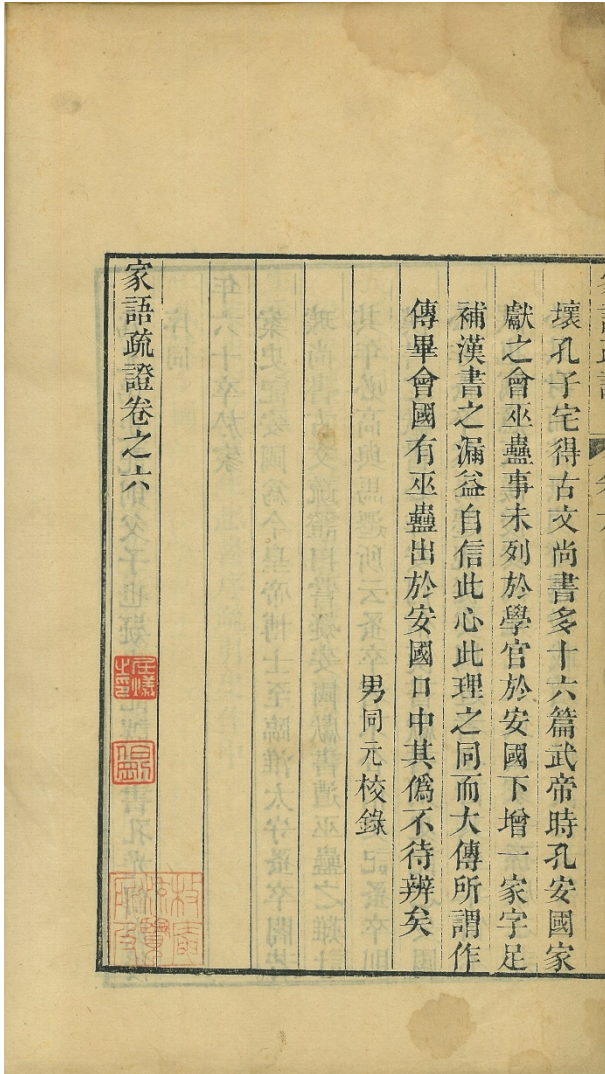 壞孔子宅得古文尚書多十六篇武帝時孔安國家
獻之會巫蠱事未列於學官於安國下增一家字足
補漢書之漏益自信此心此理之同而大傳所謂作
傳畢會國有巫蠱出於安國口中其僞不待辨矣
男同元校錄
家語疏證卷之六